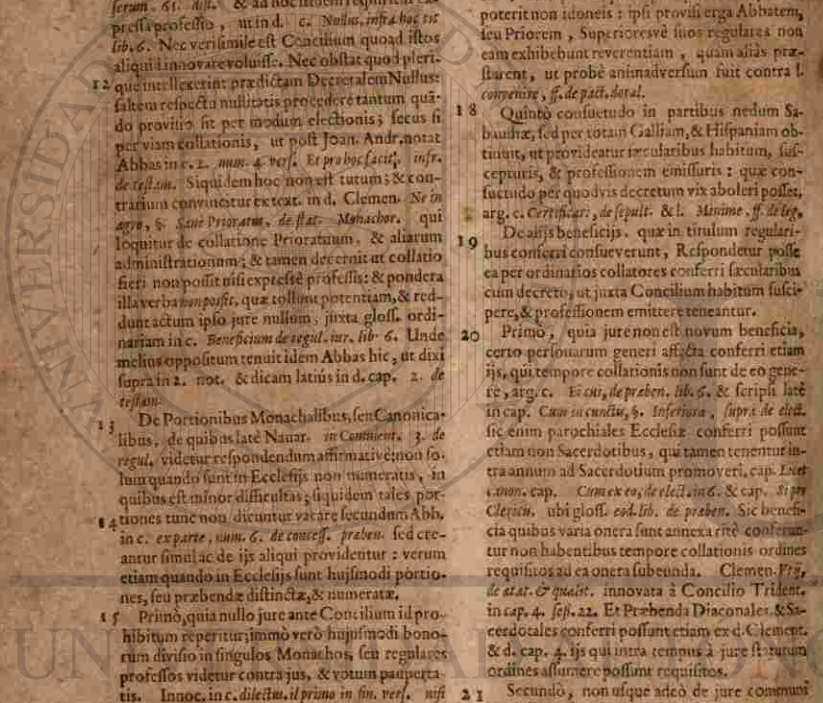 serum. 61. dist. & ad hoc
pressa professio, ut in d. c. Nullus, infra hoc tit
lib. 6. Nec verisimile est Concilium quoad istos
aliquid innovare voluisse. Nec obstat quod pleri-
12 que intellexerint prædictam Decretalem Nullus:
saltem respectu nullitatis procedere tantum quã-
do provisio fit per modum electionis; secus si
per viam collationis, ut post Joan. Andr. notat
Abbas in c. 2. num. 4. vers. Et pro hoc facit, infr.
de testam. Siquidem hoc non est tutum; & con-
trarium convincitur ex text. in d. Clemen. Ne in
agro, §. Sane Prioratus, de stat. Monachor. qui
loquitur de collatione Prioratuum, & aliarum
administrationum; & tamen decernit ut collatio
fieri non possit nisi expressè professis: & pondera
illa verba non possit, quæ tollunt potentiam, & red-
dunt actum ipso jure nullum, juxta gloss. ordi-
nariam in c. Beneficium de regul. iur. lib. 6. Unde
melius oppositum tenuit idem Abbas hic, ut dixi
supra in 2. not. & dicam latiùs in d. cap. 2. de
testam.
13 De Portionibus Monachalibus, seu Canonica-
libus, de quibus latè Nauar. in Comment. 3. de
regul. videtur respondendum affirmativè: non so-
lum quando sunt in Ecclesijs non numeratis, in
quibus est minor difficultas; siquidem tales por-
14 tiones tunc non dicuntur vacare secundum Abb.
in c. ex parte, num. 6. de concess. præben. sed cre-
antur simul ac de ijs aliqui providentur: verum
etiam quando in Ecclesijs sunt hujsmodi portio-
nes, seu præbendæ distinctæ, & numeratæ.
15 Primò, quia nullo jure ante Concilium id pro-
hibitum reperitur; immò verò hujusmodi bono-
rum divisio in singulos Monachos, seu regulares
professos videtur contra jus, & votum pauperta-
tis. Innoc. in c. dilectus, il primo in fin. vers. nisi
poterit non idoneis: ipsi provisi erga Abbatem,
seu Priorem, Superioresvè suos regulares non
eam exhibebunt reverentiam, quam aliàs præ-
starent, ut probè animadversum fuit contra l.
convenire, ff. de pact. dotal.
18 Quintò consuetudo in partibus nedum Sa-
baudiæ, sed per totam Galliam, & Hispaniam ob-
tinuit, ut provideatur sæcularibus habitum, sus-
cepturis, & professionem emissuris: quæ con-
suetudo per quodvis decretum vix aboleri posset,
arg. c. Certificari, de sepult. & l. Minime. ff. de leg,
19 De alijs beneficijs, quæ in titulum regulari-
bus conferri consueverunt, Respondetur posse
ea per ordinarios collatores conferri sæcularibus
cum decreto, ut juxta Concilium habitum susci-
pere, & professionem emittere teneantur.
20 Primò, quia jure non est novum beneficia,
certo personarum generi affecta conferri etiam
ijs, qui tempore collationis non sunt de eo gene-
re, arg. c. Ei cui, de præben. lib. 6. & scripsi latè
in cap. Cum in cunctis, §. Inferiora, supra de elect.
sic enim parochiales Ecclesiæ conferri possunt
etiam non Sacerdotibus, qui tamen tenentur in-
tra annum ad Sacerdotium promoveri, cap. Licet
canon. cap. Cum ex eo, de elect. in 6. & cap. Si pro
Clericis. ubi gloss. eod. lib. de præben. Sic benefi-
cia quibus varia onera sunt annexa ritè conferun-
tur non habentibus tempore collationis ordines
requisitos ad ea onera subeunda. Clemen.
de ætat. & qualit. innovata à Concilio Trident.
in cap. 4. sess. 22. Et Præbenda Diaconales, & Sa-
cerdotales conferri possunt etiam ex d. Clement.
& d. cap. 4. ijs qui intra tempus à jure statutum
ordines assumere possunt requisitos.
21 Secundò, non usque adeò de jure communi